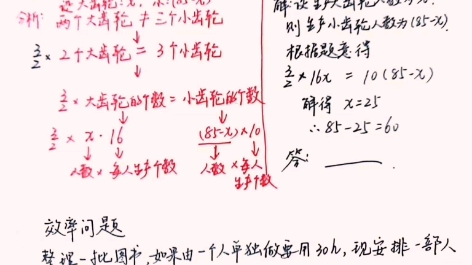 分析: 造大齿轮:x, 小:(85-x)
两个大齿轮 ≠ 三个小齿轮
3/2 × 2个大齿轮 = 3个小齿轮
3/2 × 大齿轮的个数 = 小齿轮的个数
3/2 × x · 16 (85-x) × 10
人数 × 每人生产个数 人数 × 每人生产个数
则生产小齿轮人数为(85-x).
根据题意得
3/2 × 16x = 10(85-x)
解得 x=25
∴ 85-25=60
答: ______.
效率问题
整理一批图书,如果由一个人单独做要用30h,现安排一部人